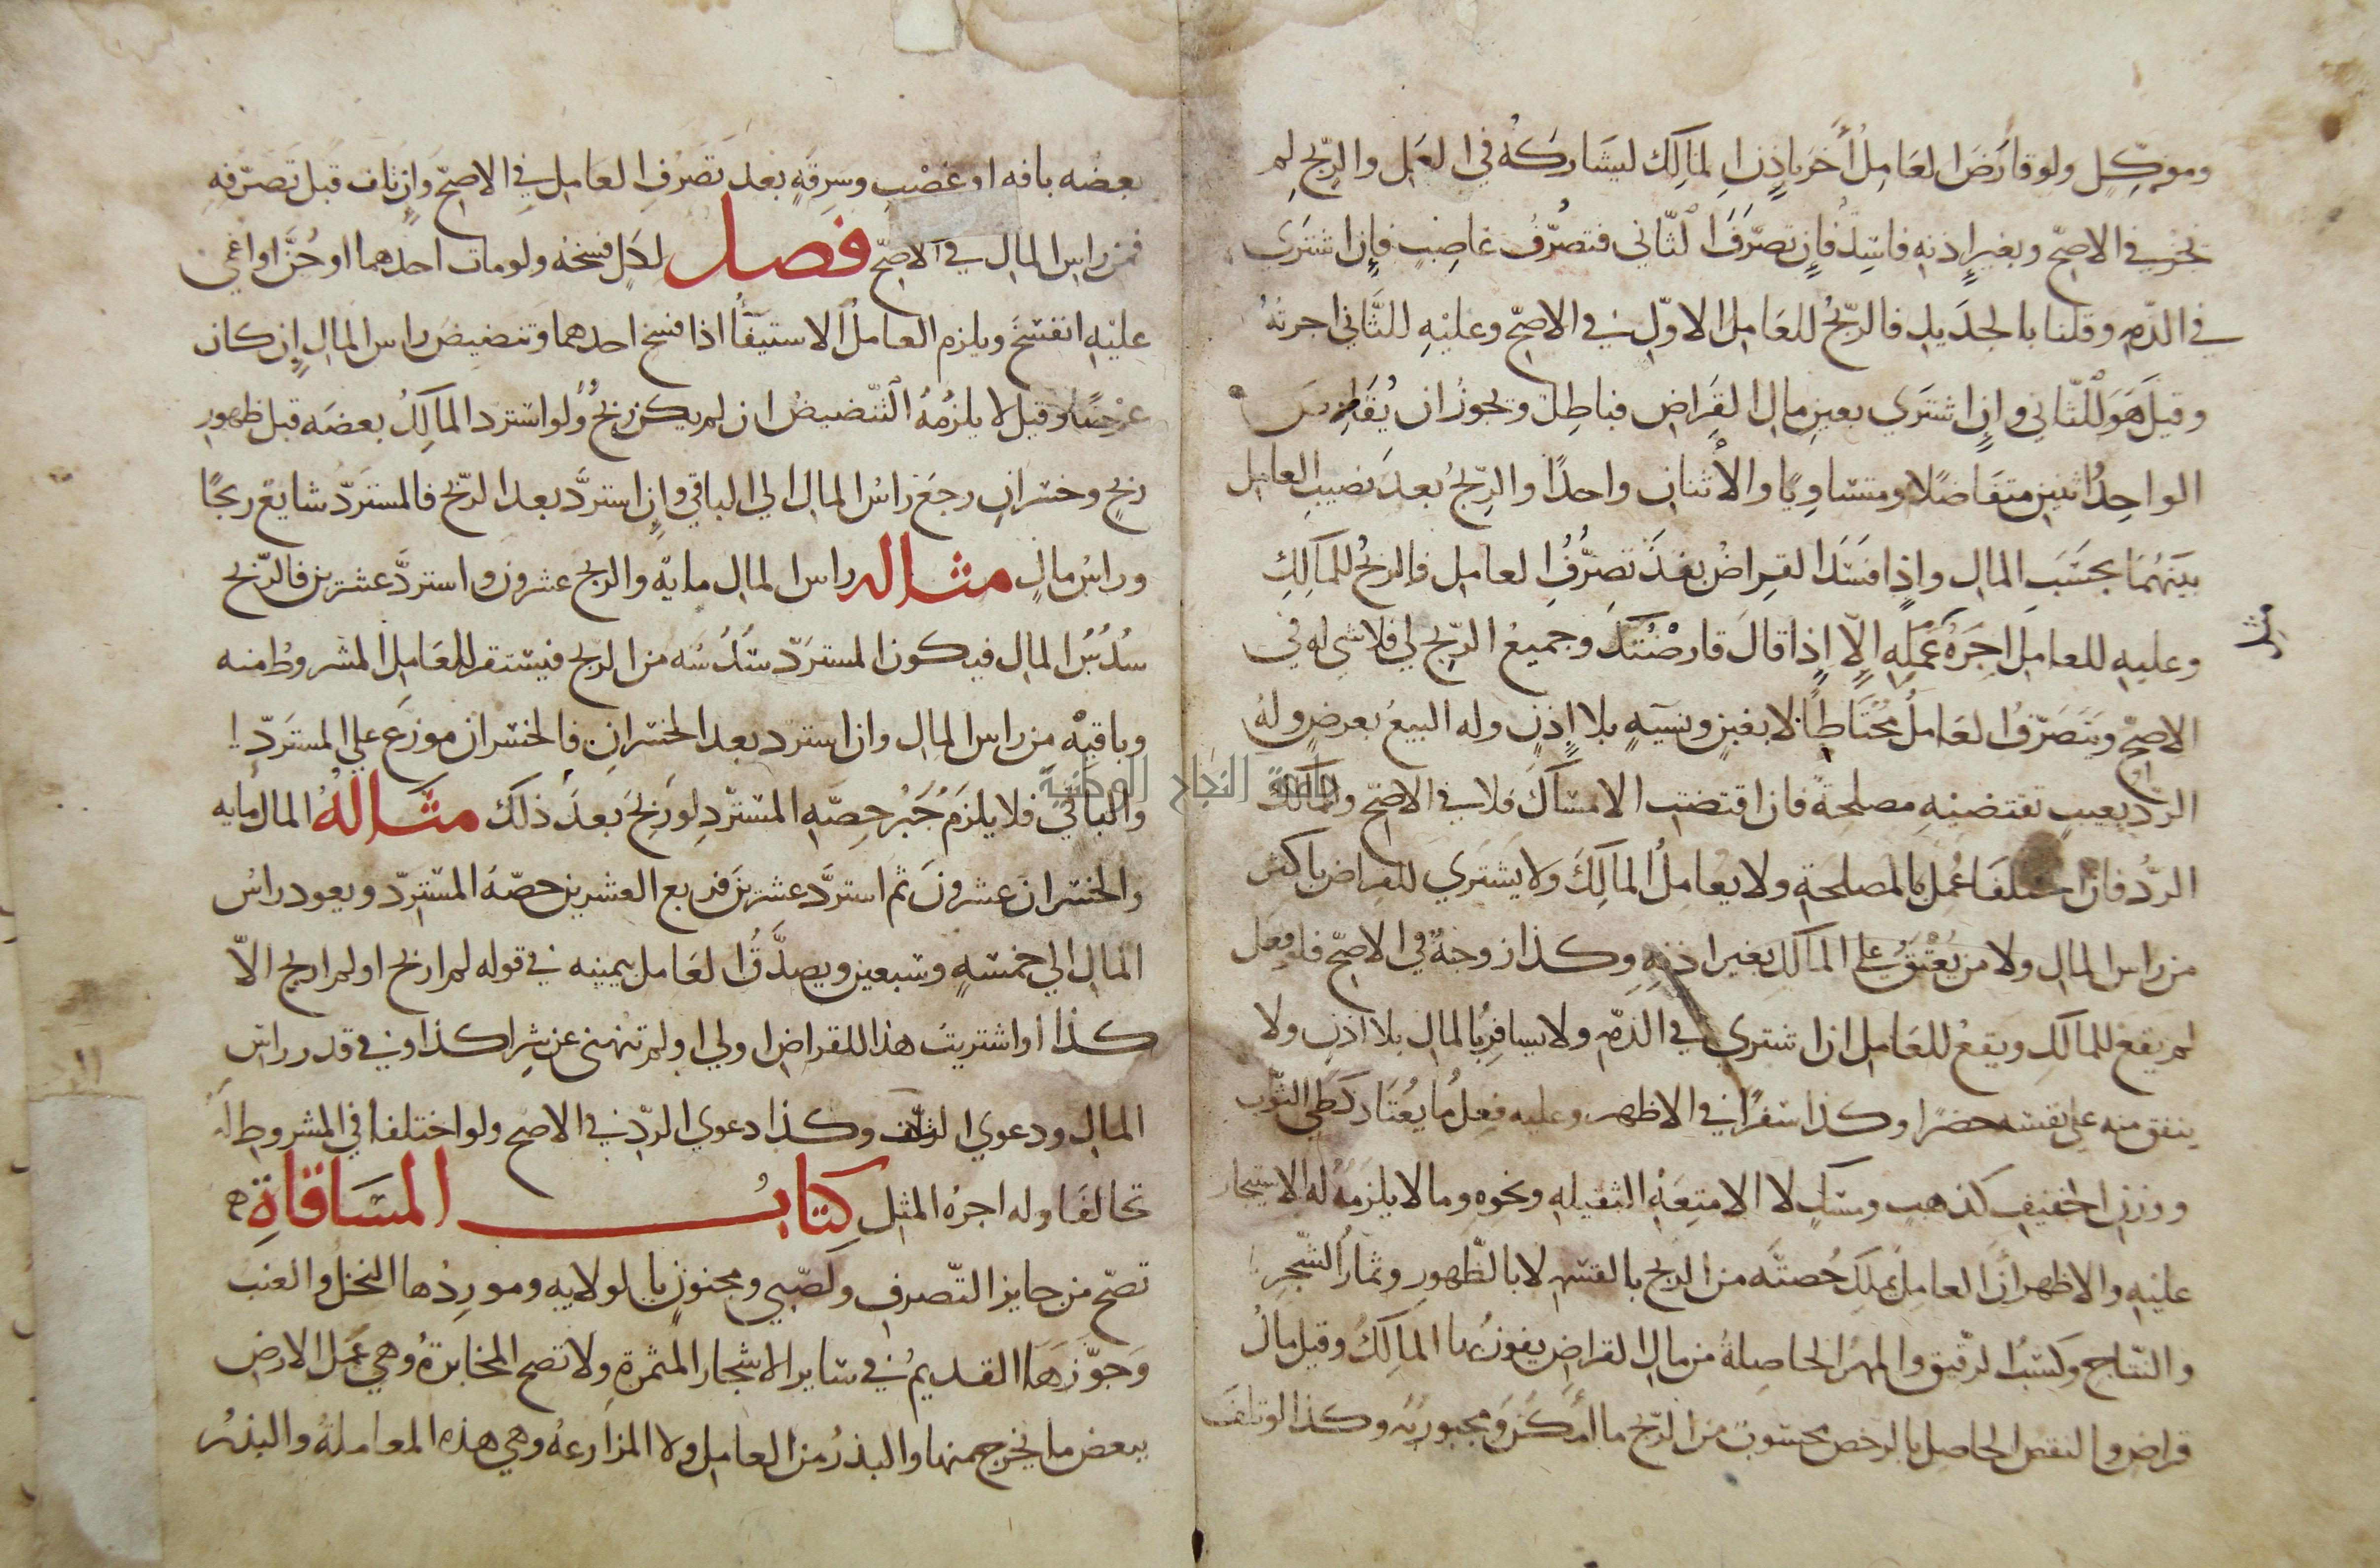 وموكّل ولو قارَضَ العَامِلُ أخَر باذٍنِ المالِك ليشَاركَهُ في العَمل والرّبحِ لم
يجز في الاصحّ وبغير إذنه فاسِدٌ فإن تصرّفَ الثّاني فتصُرّفُ غاصِبٍ فإن اشترى
في الذّمه وقلنا بالجديد فالرّبحُ للعَامِل الاوّلِ في الاصحّ وعليْهِ للثّاني اجرتهُ
وقيلَ هَوَ للثّاني وإن اشترى بعين مال القِراض فباطِل ويجوزُ ان يُقارض
الواحِدُ اثنين متفاضلًا ومتساوِيًا والأثنان واحدًا والرّبحُ بعدَ نصيبِ العامِل
بينَهُمَا بحسَبِ المال وإذا فسَدَ القِراضُ بَعْدَ تصرُّفِ العامِل فالربحُ للمالِكِ
وعليه للعامِل اجرَةُ عَملِه إلّا إذا قالَ قارضْتُكَ وجميعُ الرّبحِ لي فلا شي له في
الاصحّ ويتَصَرّفُ العَامِلُ محُتَاطًا لا بغبنٍ ونسيَهٍ بلا إذنٍ وله البيعُ بعرضٍ ولهُ
الردّ بعيبٍ تقتضيهِ مصلحةً فان اقتضتِ الامسَاك فلا في الاصحّ وللمالك
الردّ فان اختلفَا عُمِل بالمصلحَةِ ولا يعامِلُ المالِكَ ولا يشتري للقراضِ باكثر
من راس المال ولا من يُعْتَقُ على المالك بغير اذنِهِ وكذا زوجهُ في الاصحّ فلو فعل
لم يقع للمالكِ ويقعُ للعَامِل ان اشترى في الذمّه ولا يسافِرُ بالمال بلا اذنٍ ولا
ينفق منه على نفسه حضرًا وكذا سَفرًا في الاظهر وعليه فعلُ ما يُعْتَاد كطيّ الثّوب
ووزن الخفيفِ كذهبٍ ومسكٍ لا الامتِعَةِ الثقيلهِ ونحوِهِ وما لا يلزمُهُ لهُ الاستيجار
عليْهِ والاظهر أنّ العامِلَ يملكُ حُصتَه من الربح بالقسمهِ لا بالظّهورِ وثمارُ الشّجرِ
والنّتاج وكسْبُ الرّقيق والمهرُ الحاصِلةُ من مالِ القراض يفوزُ بها المالِكُ وقيل مالُ
قراض والنقص الحاصِل بالرخص محسوبٌ من الرّبح ما امكنَ ومجبورٌ به وكذا لو تلفَ
بعضُه بافه او غصْبٍ وسرِقَهٍ بعدَ تصَرّفِ العَامِل في الاصحّ وان تلف قبل تصرّفِهِ
فمن راس المال في الاصحّ فصل لكلٍ فسخهُ ولو مات احدهما او جُنّ او اغمي
عليْهِ انفسَخَ ويلزم العاملُ الاستيفاُ اذا فسخ احدهما وتنضيضَ راس المال إن كان
عرْضًا وقيل لا يلزمُهُ التّنضيضُ ان لم يكن ربحٌ ولو استرد المالِكُ بعضَه قبل ظهورِ
ربحٍ وخسرانٍ رجعَ راسُ المال الي الباقي وإن استردَّ بعد الرّبح فالمستَردّ شايعٌ ربحًا
وراسُ مالٍ مثاله راس المال مايه والربح عشرون واستردَّ عشرين فالرّبح
سُدُسُ المال فيكون المسترَدّ سُدُسُه من الربح فيستقر للعَامِل المشروطُ منه
وباقيْهِ من راس المال وان استرد بعد الخسرانِ فالخسران موزّع على المستَرَدّ
والباقي فلا يلزَمُ جَبْرُ حِصّهِ المسترّدِ لو رَبحَ بعدَ ذلك مثاله المال مايه
والخسران عشرونَ ثم استردَّ عشرين فربع العشرين حصّهُ المسّتردّ ويعود راسُ
المال الي خمسهٍ وسبعين ويصدّقُ العَامِل بيمينِه في قوله لم اربح او لم اربح الاّ
كذا او اشتريتُ هذا للقراضِ او لي او لم تنهني عن شرا كذا وفي قدر راسِ
المال ودعوي التلَف وكذا دعوي الردّ في الاصح ولو اختلفا في المشروطِ لَه
تحالفَا وله اجرهُ المثل كِتابُ المسَاقاةِ
تصحّ من جايز التّصرفِ ولصّبيٍ ومجنونٍ بالولايه وموردُها النخلُ والعنبُ
وَجوّزَهَا القديمُ في سَايرِ الاشجار المثمرةِ ولا تصح المخابرةُ وهي عَملُ الارضِ
ببعض ما يخرج منها والبذرُ من العامِل ولا المزارعهُ وهي هذه المعاملةُ والبذرُ
جامعة النجاح الوطنية